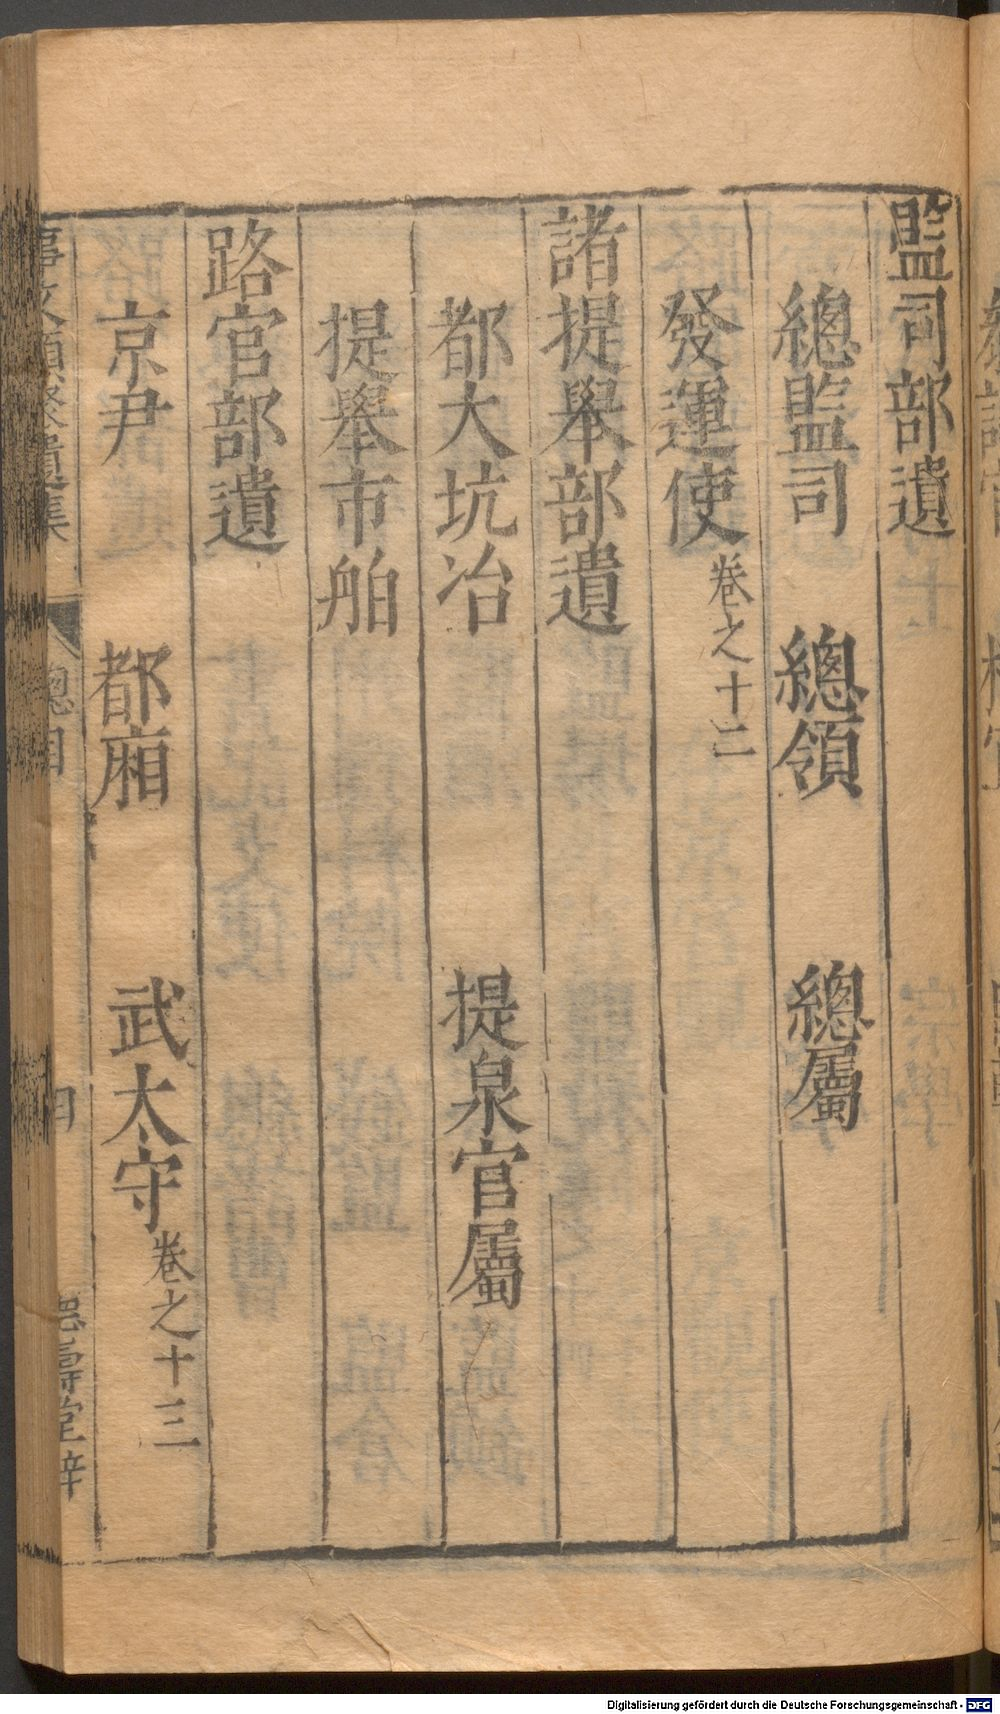 監司部遺
總監司 總領 總屬
發運使 卷之十二
諸提舉部遺
都大坑冶 提泉官屬
提舉市舶
路官部遺
京尹 都廂 武太守 卷之十三
事文類聚遺集 總目 四 德壽堂梓
Digitalisierung gefördert durch die Deutsche Forschungsgemeinschaft - DFG